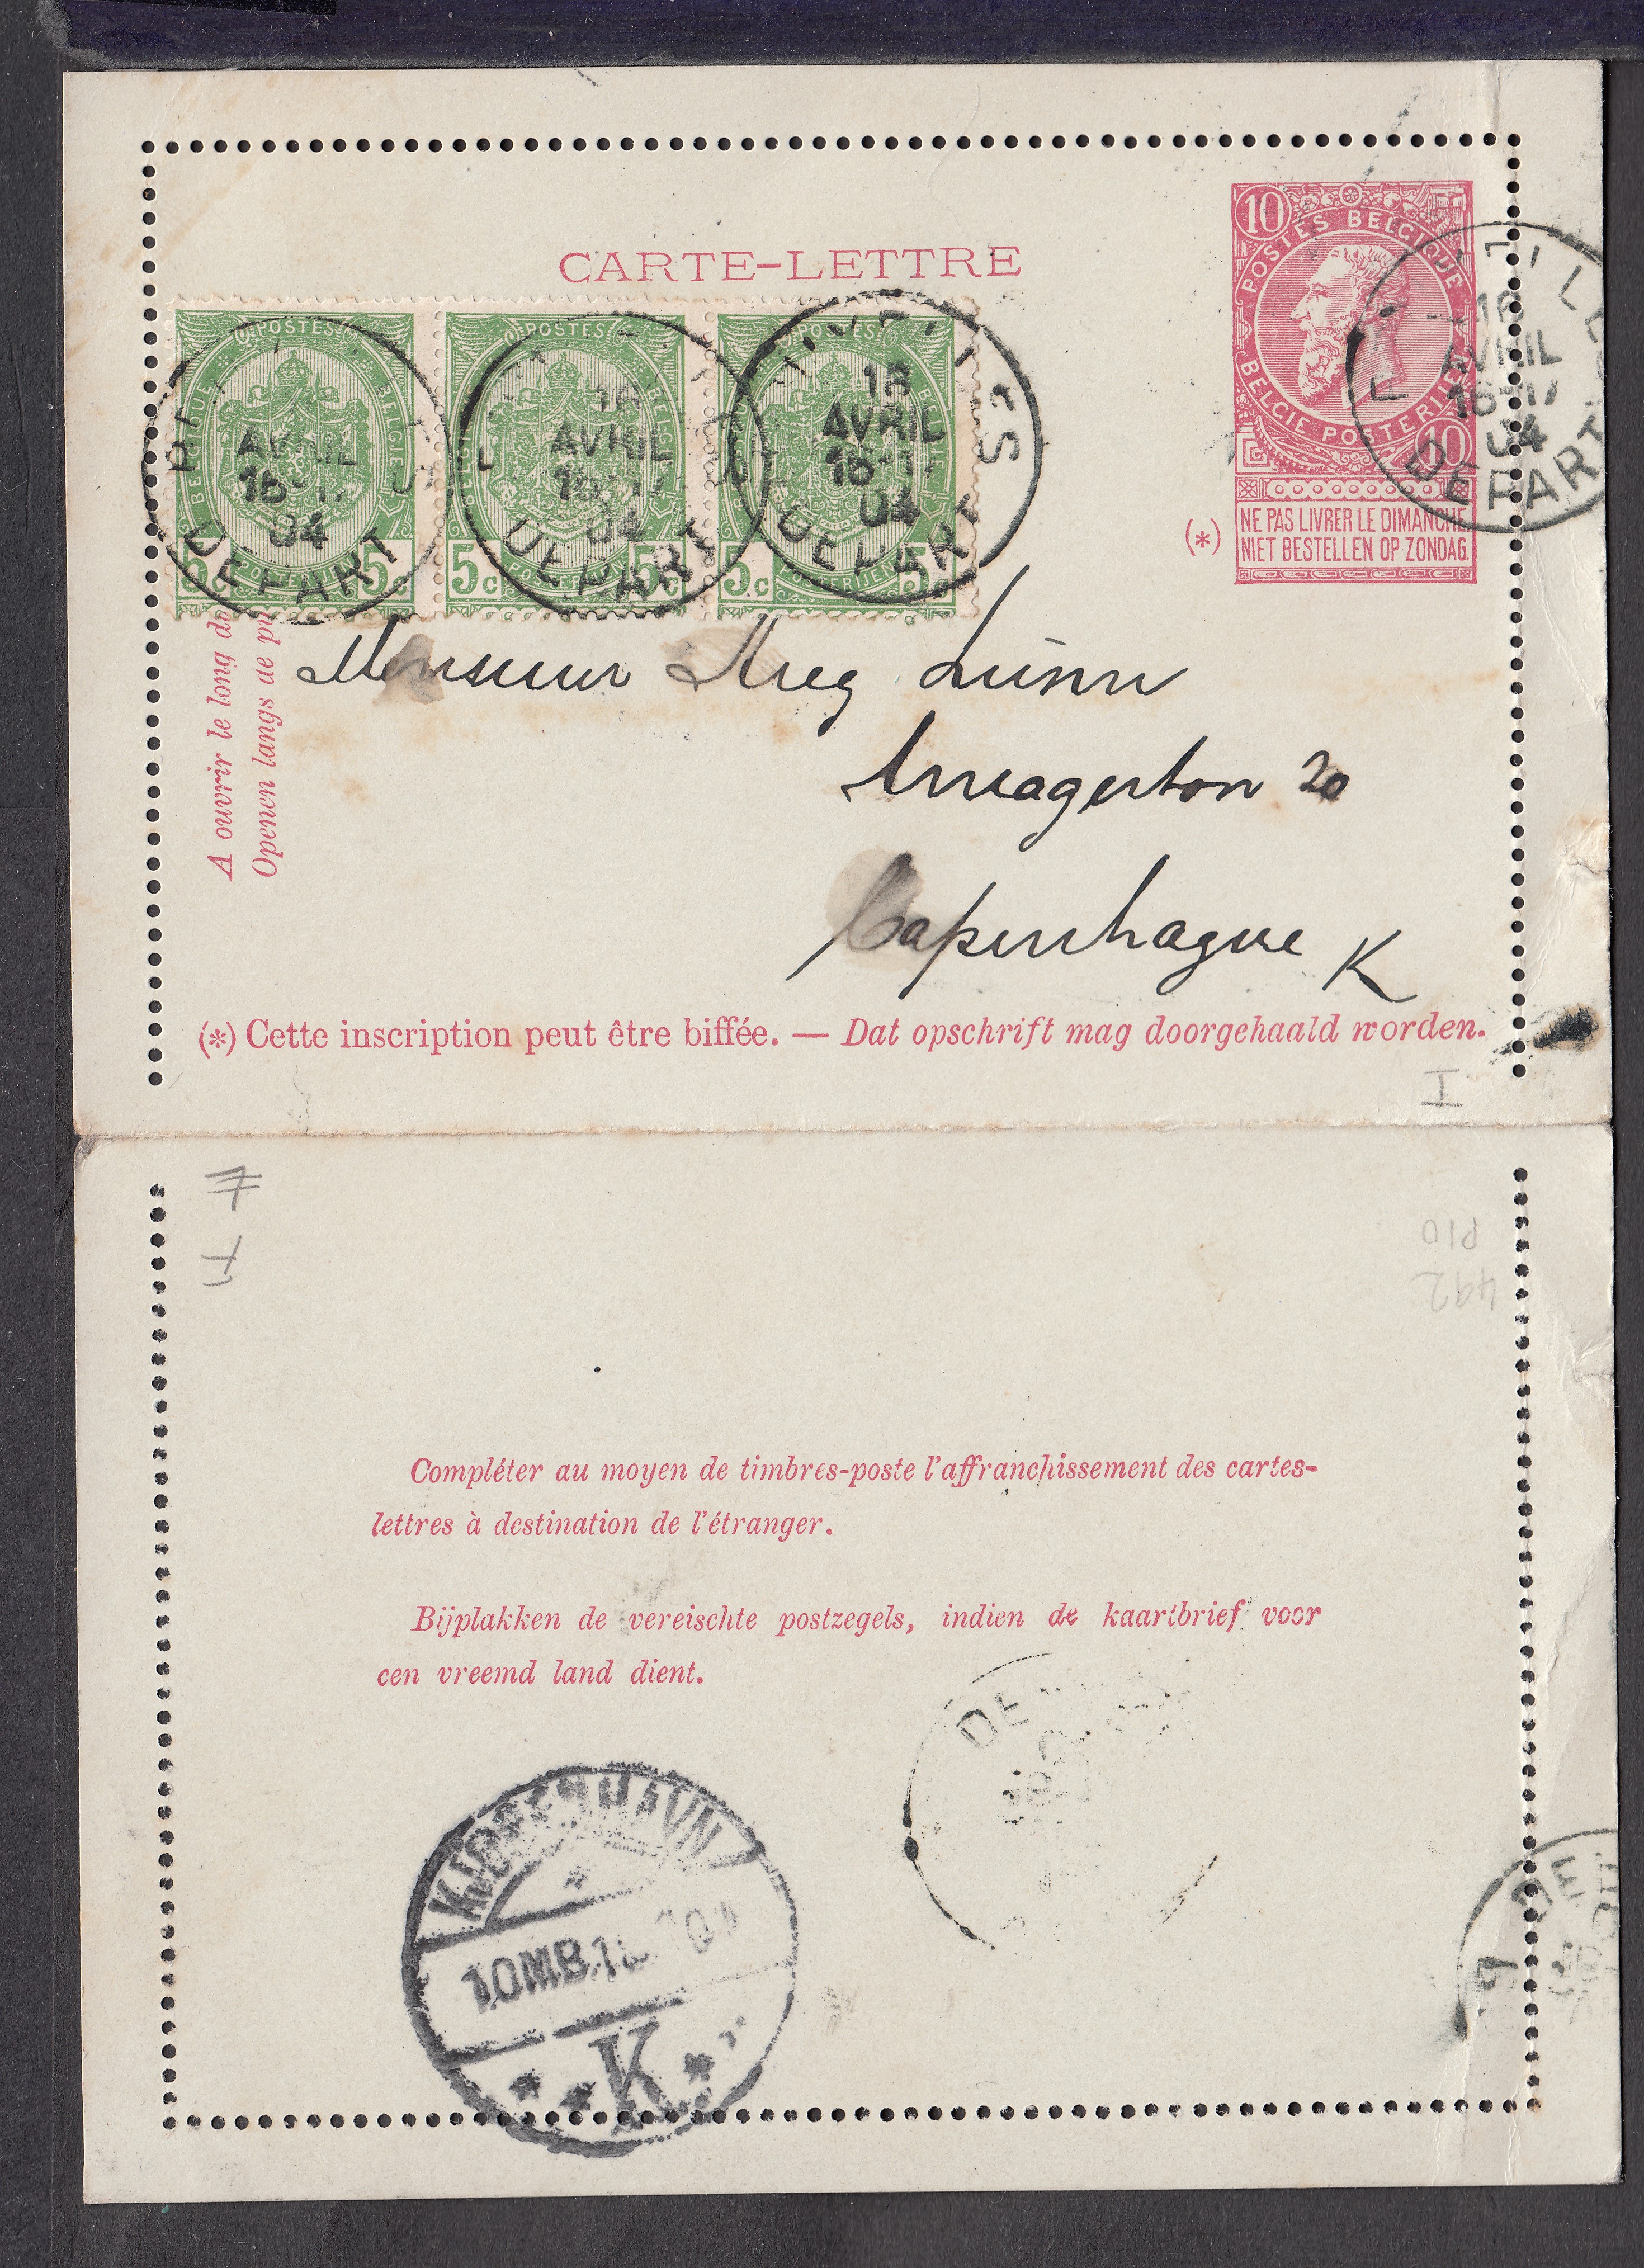 CARTE-LETTRE
10
POSTES BELGIQUE
BELGIE POSTERIJEN
10
NE PAS LIVRER LE DIMANCHE
NIET BESTELLEN OP ZONDAG.
(*)
16
AVRIL
16-17
04
DEPART
POSTES
BELGIQUE
BELGIE
5c POSTERIJEN 5c
AVRIL
16-17
04
DEPART
POSTES
BELGIE
5c POSTERIJEN 5c
16
AVRIL
16-17
04
DEPART
POSTES
5c POSTERIJEN 5c
16
AVRIL
16-17
04
DEPART
A ouvrir le long d
Openen langs de
Monsieur Aug
Amagertorv 20
Copenhague K
(*) Cette inscription peut être biffée. — Dat opschrift mag doorgehaald worden.
I
P10
492
Compléter au moyen de timbres-poste l'affranchissement des cartes-
lettres à destination de l'étranger.
Bijplakken de vereischte postzegels, indien de kaartbrief voor
een vreemd land dient.
KJØBENHAVN
10MB.18
K
DE
DE